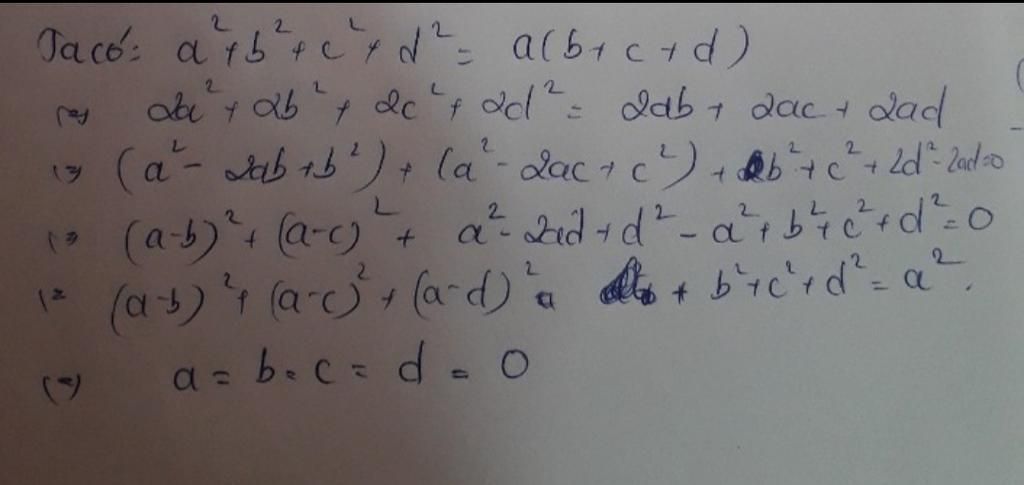 Ta có: a² + b² + c² + d² = a(b + c + d)
(=) 2a² + 2b² + 2c² + 2d² = 2ab + 2ac + 2ad
(=) (a² - 2ab + b²) + (a² - 2ac + c²) + b² + c² + 2d² - 2ad = 0
(=) (a-b)² + (a-c)² + a² - 2ad + d² - a² + b² + c² + d² = 0
(=) (a-b)² + (a-c)² + (a-d)² + b² + c² + d² = a².
(=) a = b = c = d = 0